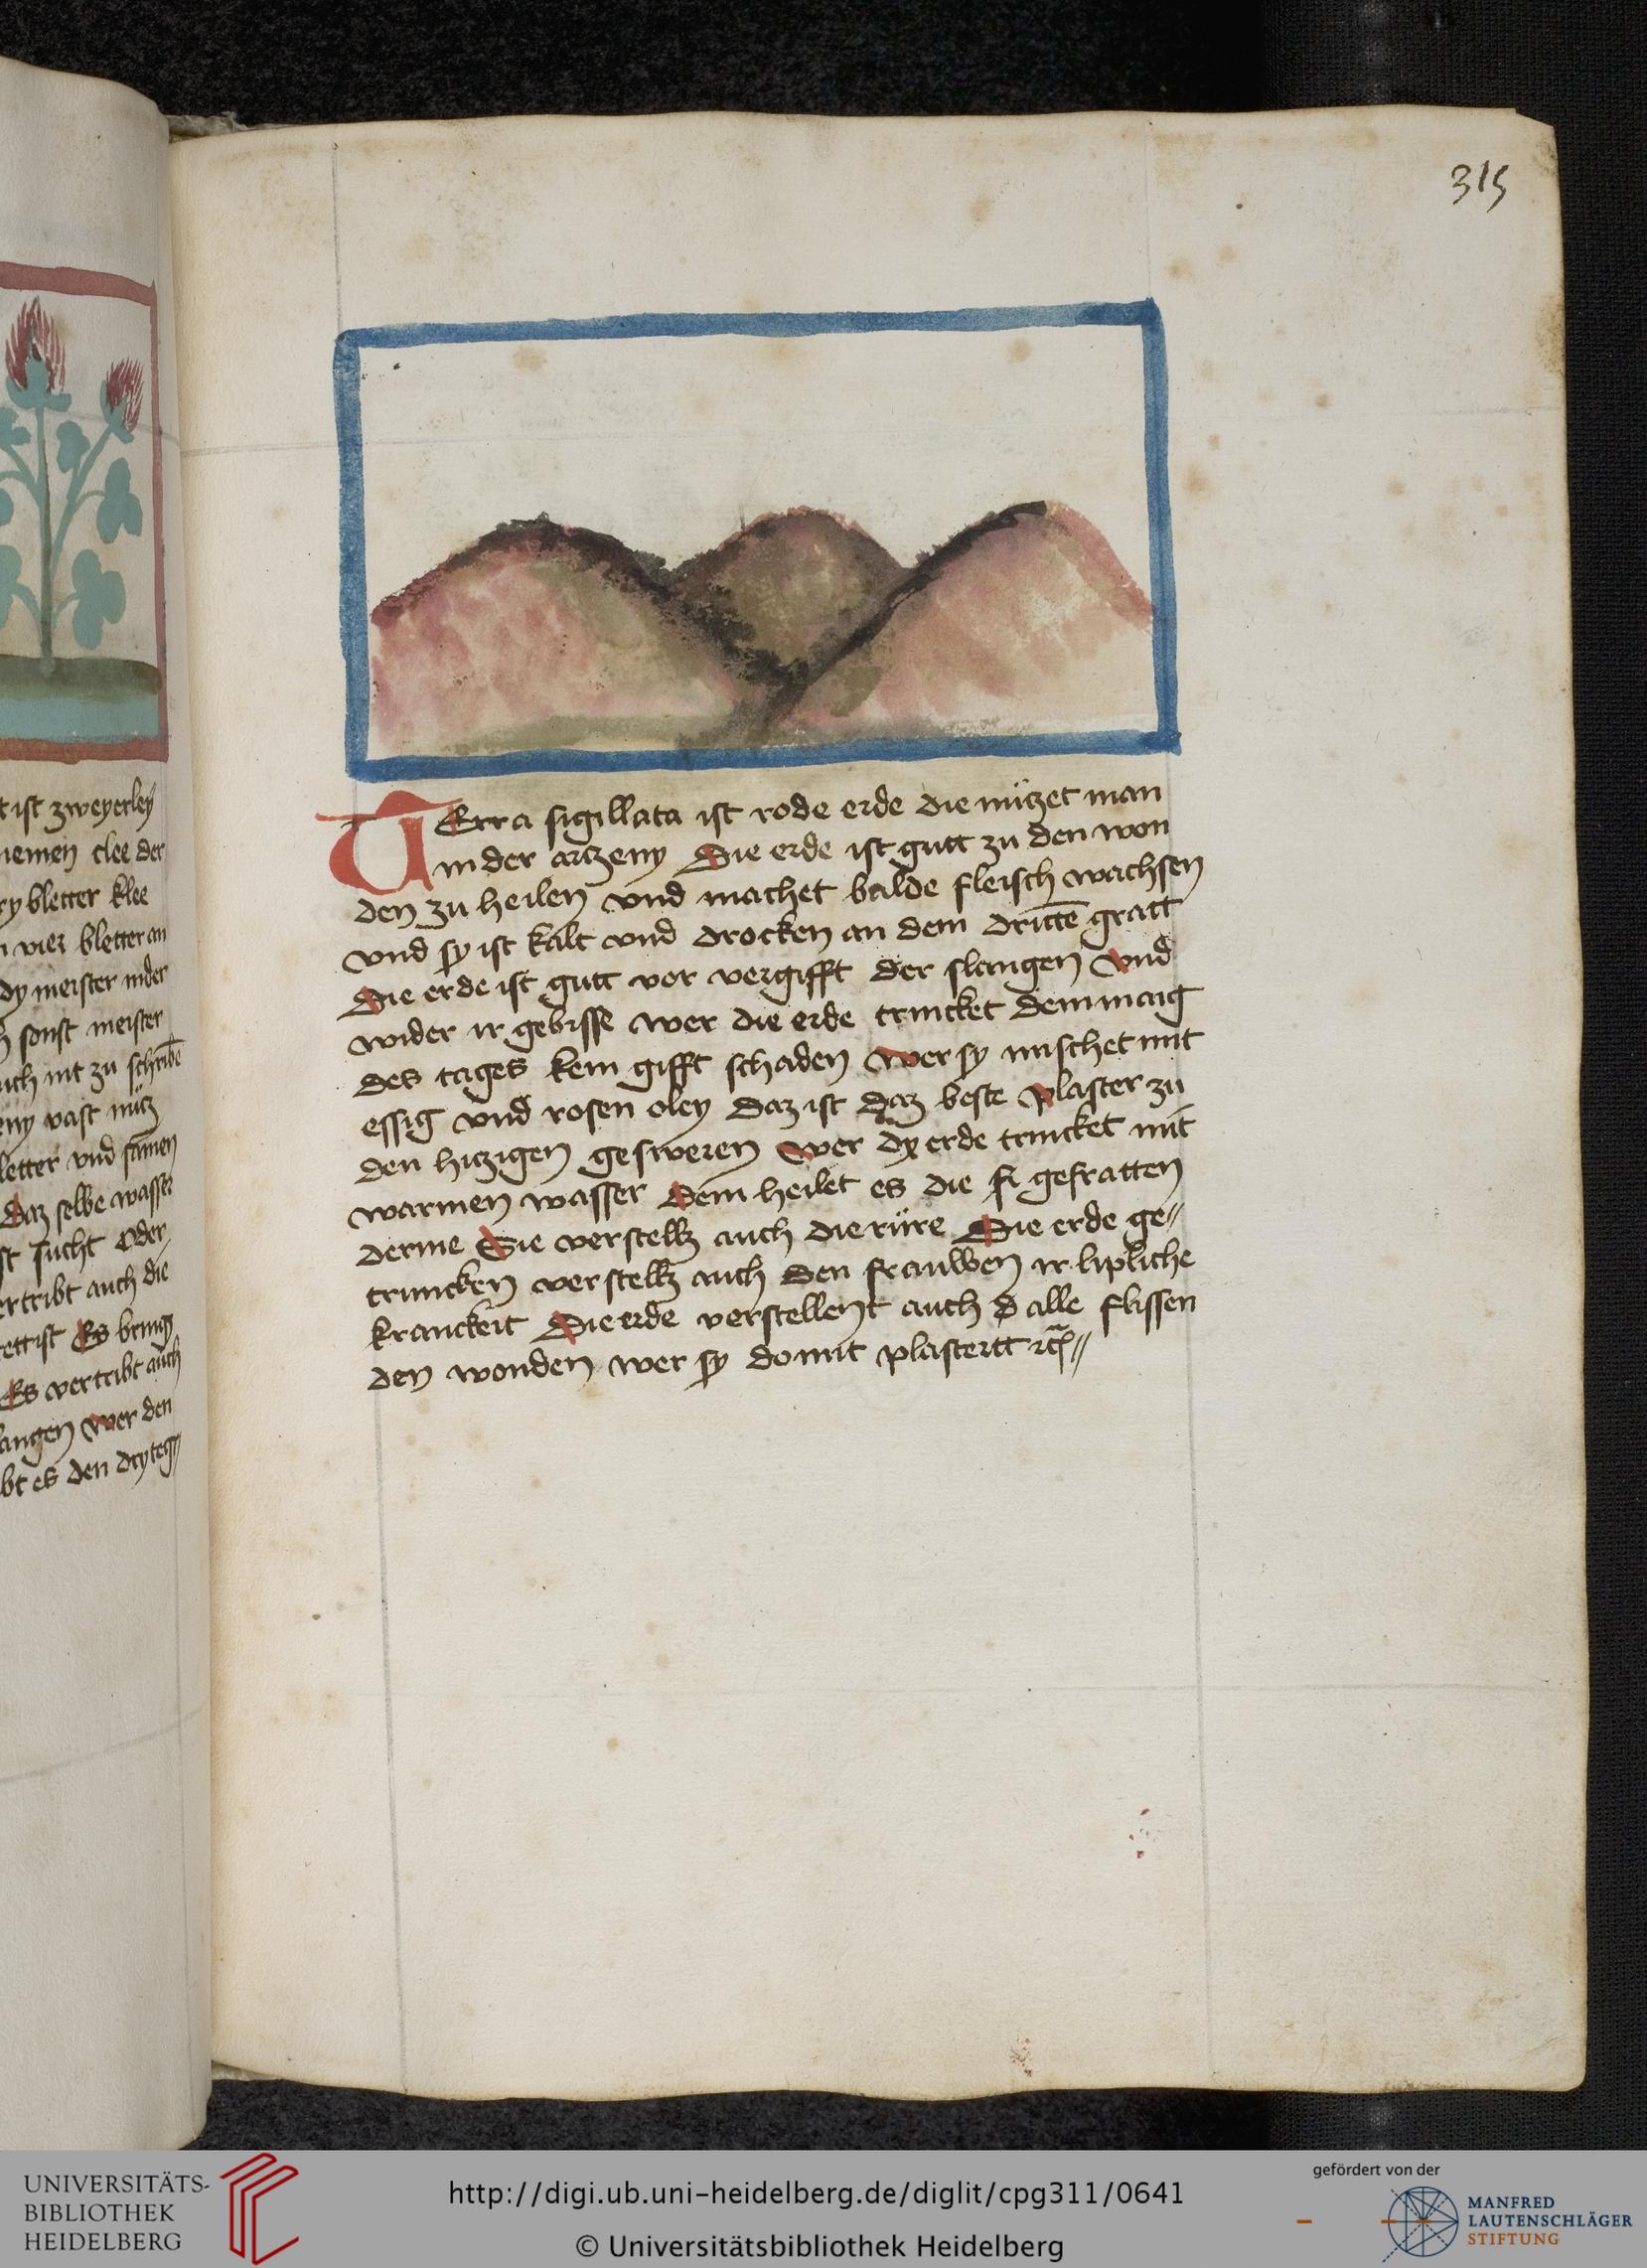 315
t ist zweyerley
nemen clee der
ry bletter klee
n vier bletter an
dy meister in der
sonst meister
uch nit zu schribē
eny vast nütz
letter vnd samen
Daz selbe wasser
st sucht Oder
ertribt auch die
ettist Es bringt
Es vertribt auch
langen Wer den
ibt es den dry teg
TErra sigillata ist rode erde die nützet man
in der artzeny Die erde ist gutt zu den won
den zu heilen vnd machet balde fleisch wachsen
vnd sy ist kalt vnd drocken an dem drittē gratt
Die erde ist gutt vor vergifft der slangen Vnd
wider ir gebisse wer die erde trincket dem mag
des tages kein gifft schaden Wer sy mischet mit
essig vnd rosen oley Daz ist daz beste Plaster zu
den hitzigen gesweren Wer dy erde trincket mit
warmen wasser Dem heilet es die gefratten
derme Sie verstellt auch die rüre Die erde ge
truncken verstellt auch den frauwen ir lipliche
kranckeit Die erde verstellent auch alle flissen
den wonden wer sy do mit plastertt
UNIVERSITÄTS-
BIBLIOTHEK
HEIDELBERG
http://digi.ub.uni-heidelberg.de/diglit/cpg311/0641
© Universitätsbibliothek Heidelberg
gefördert von der
MANFRED
LAUTENSCHLÄGER
STIFTUNG